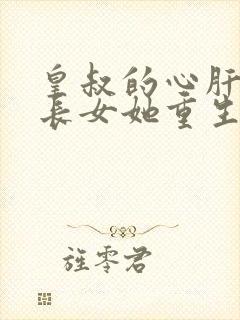 皇叔的心肝
长女她重生
旌零君